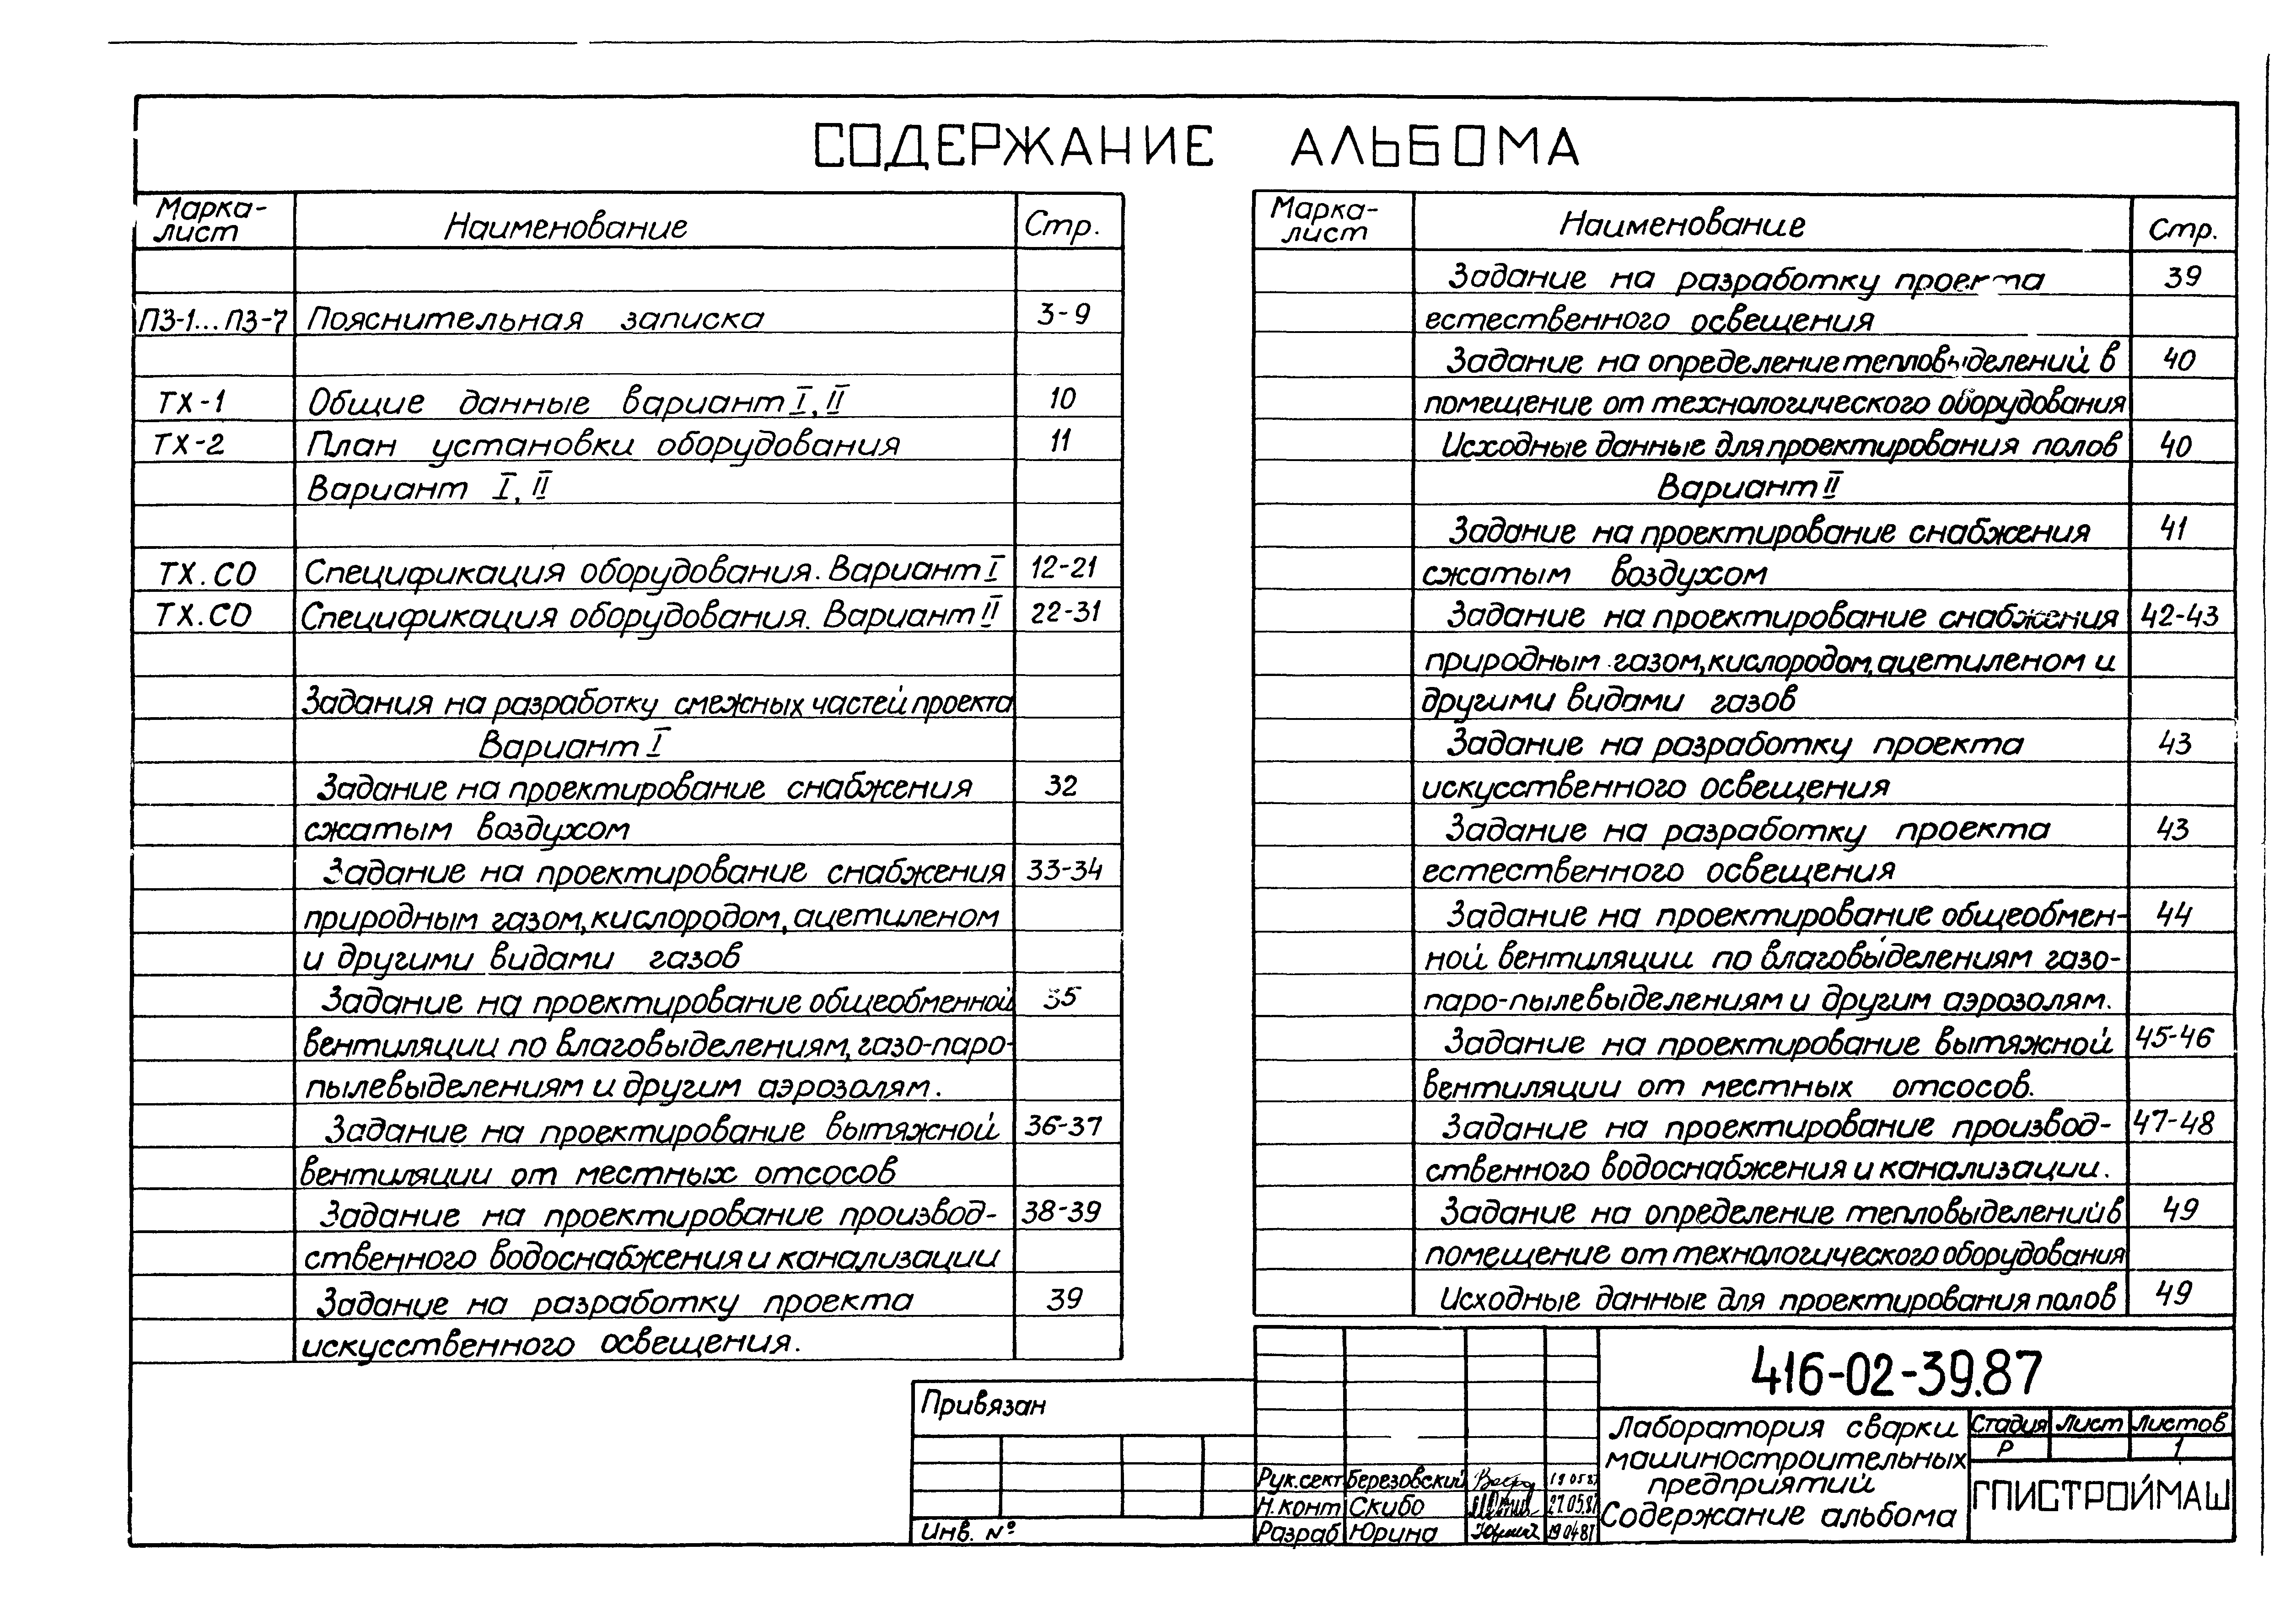 СОДЕРЖАНИЕ АЛЬБОМА
Марка-лист Наименование Стр.
ПЗ-1...ПЗ-7 Пояснительная записка 3-9
ТХ-1 Общие данные вариант I, II 10
ТХ-2 План установки оборудования 11
Вариант I, II
ТХ.СО Спецификация оборудования. Вариант I 12-21
ТХ.СО Спецификация оборудования. Вариант II 22-31
Задания на разработку смежных частей проекта
Вариант I
Задание на проектирование снабжения 32
сжатым воздухом
Задание на проектирование снабжения 33-34
природным газом, кислородом, ацетиленом
и другими видами газов
Задание на проектирование общеобменной 35
вентиляции по влаговыделениям, газо-паро-
пылевыделениям и другим аэрозолям.
Задание на проектирование вытяжной 36-37
вентиляции от местных отсосов
Задание на проектирование производ- 38-39
ственного водоснабжения и канализации
Задание на разработку проекта 39
искусственного освещения.
Марка-лист Наименование Стр.
Задание на разработку проекта 39
естественного освещения
Задание на определение тепловыделений в 40
помещение от технологического оборудования
Исходные данные для проектирования полов 40
Вариант II
Задание на проектирование снабжения 41
сжатым воздухом
Задание на проектирование снабжения 42-43
природным газом, кислородом, ацетиленом и
другими видами газов
Задание на разработку проекта 43
искусственного освещения
Задание на разработку проекта 43
естественного освещения
Задание на проектирование общеобмен- 44
ной вентиляции по влаговыделениям газо-
паро-пылевыделениям и другим аэрозолям.
Задание на проектирование вытяжной 45-46
вентиляции от местных отсосов.
Задание на проектирование производ- 47-48
ственного водоснабжения и канализации.
Задание на определение тепловыделений в 49
помещение от технологического оборудования
Исходные данные для проектирования полов 49
Привязан
Инв. №
Рук.сект Березовский 19 05 87
Н.конт Скибо 27.05.87
Разраб Юрина 19 04 87
416-02-39.87
Лаборатория сварки
машиностроительных
предприятий
Содержание альбома
Стадия Лист Листов
Р 1
ГПИСТРОЙМАШ